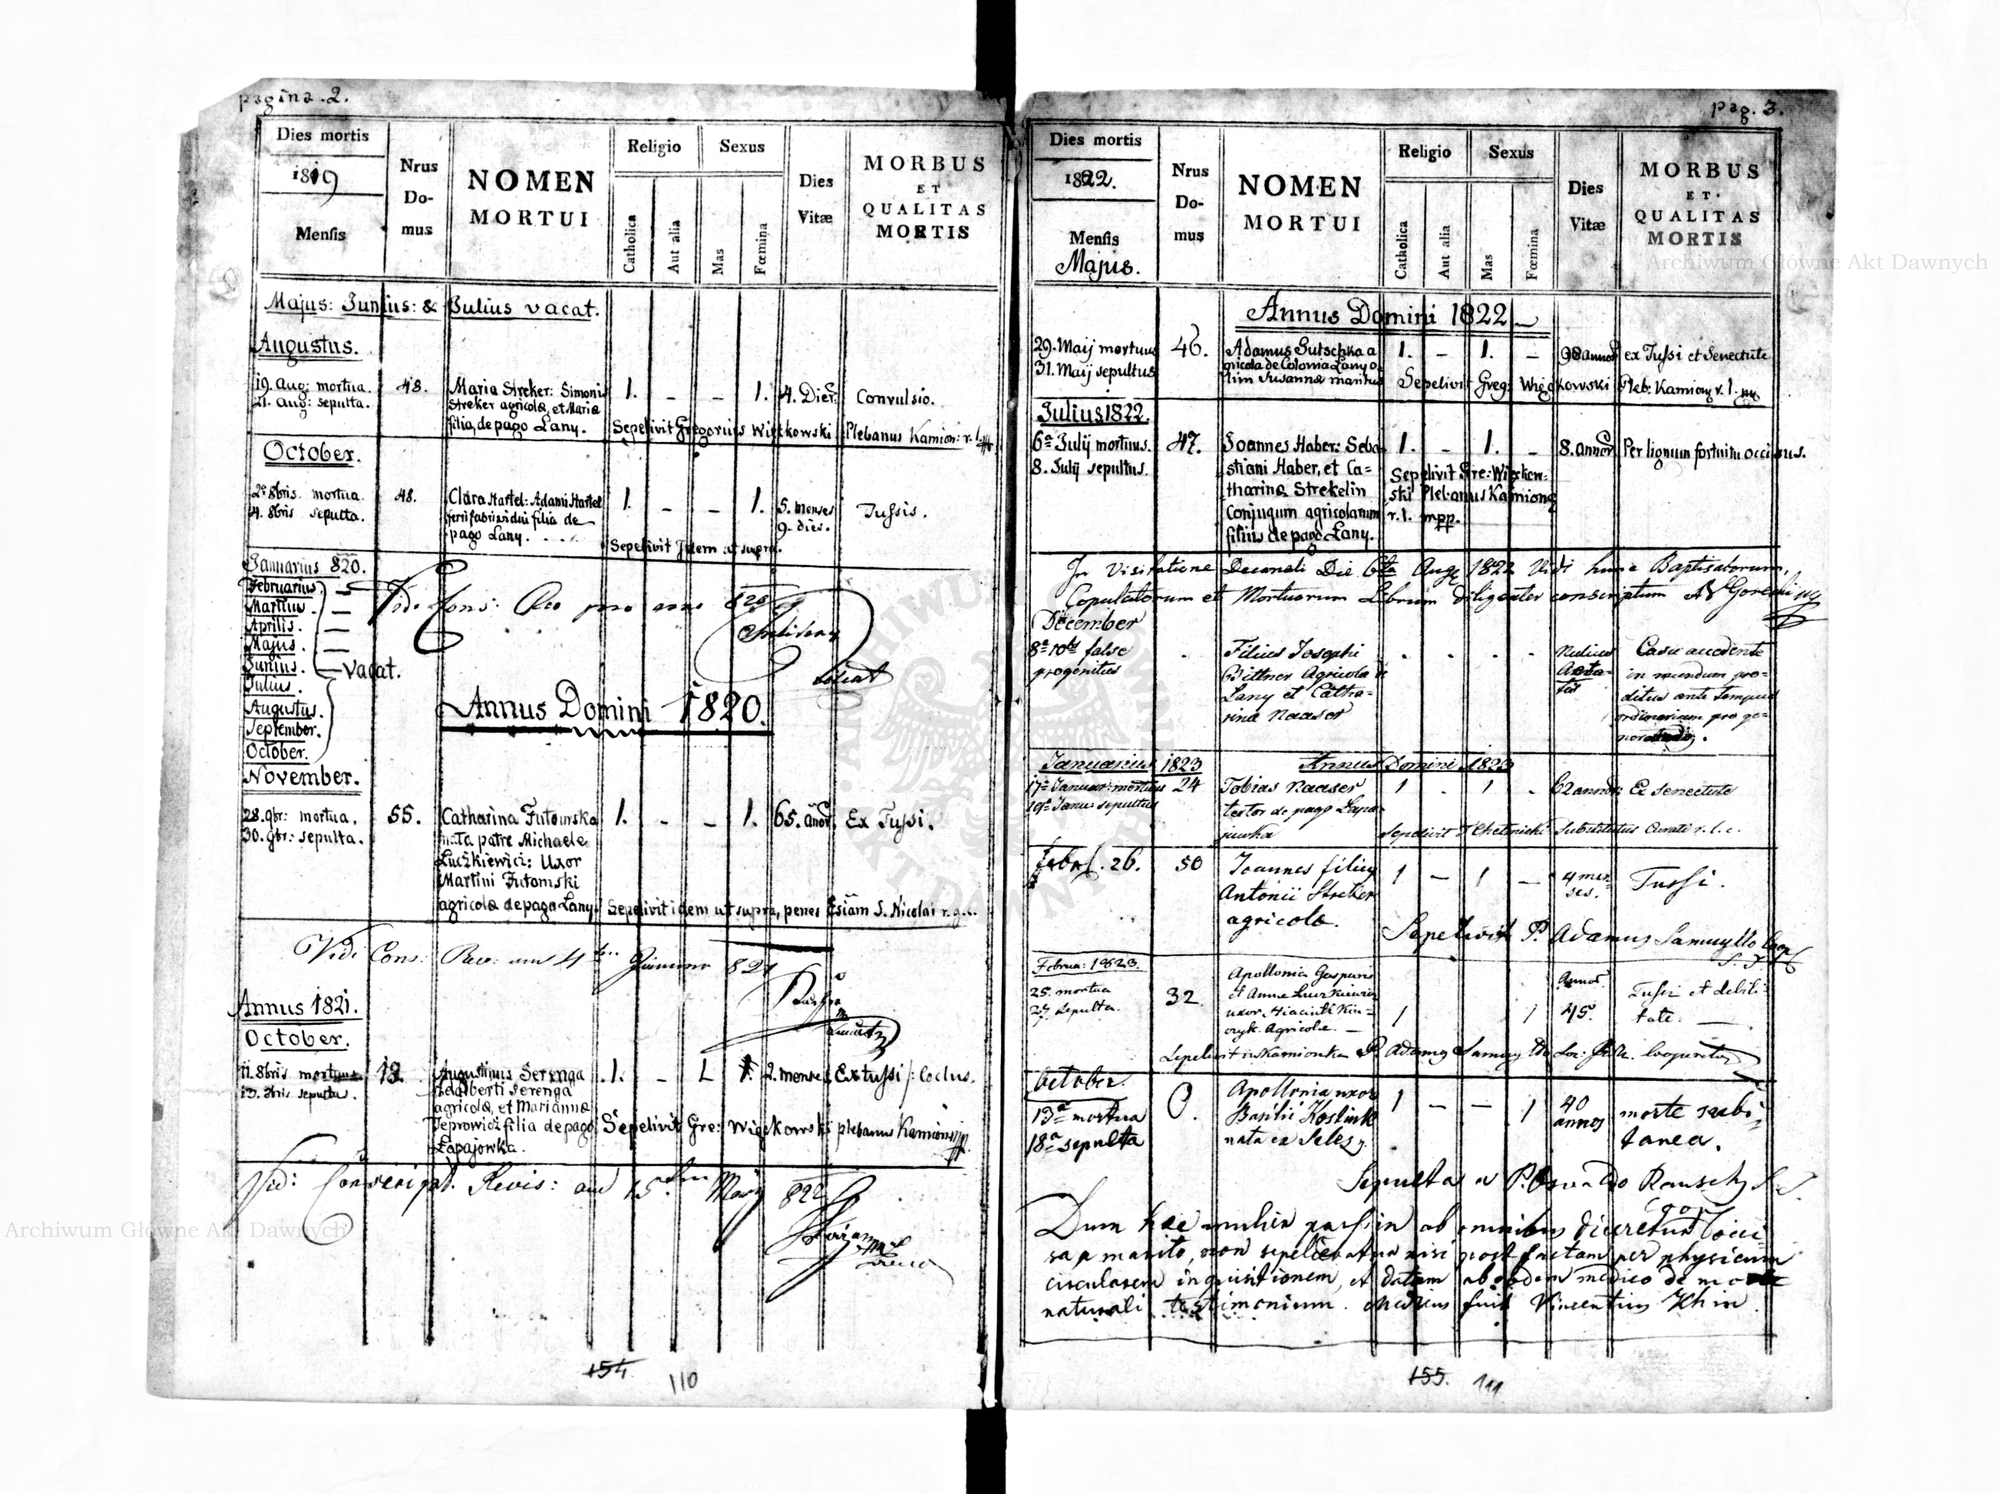 pagina.2.
Dies mortis
1819
Mensis
Nrus
Do-
mus
NOMEN
MORTUI
Religio
Catholica
Aut alia
Sexus
Mas
Fœmina
Dies
Vitæ
MORBUS
ET
QUALITAS
MORTIS
Majus: Junius: & Julius vacat.
Augustus.
19. Aug: mortua.
21. Aug: sepulta.
48.
Maria Streker: Simonis
Streker agricolæ, et Maria
filia, de pago Lany.
1. - - 1.
4. Dier:
Convulsio.
Sepelivit Gregorius Więckowski Plebanus Kamion: r. l. mp
October.
2. 8bris mortua.
4. 8bris sepulta.
48.
Clara Hartel: Adami Hartel
filia de
pago Lany.
1. - - 1.
5. menses
9. dies.
Tussis.
Sepelivit Idem ut supra.
Januarius 820.
Februarius
Martius
Aprilis
Majus
Junius
Julius
Augustus.
September.
October.
vacat.
Vidi Cons: Rev pro anno 820
Annus Domini 1820.
November.
28. 9br: mortua.
30. 9br: sepulta.
55.
Catharina Futomska
nata patre Michaele
Luczkiewicz: Uxor
Martini Futomski
agricolæ de pago Lany.
1. - - 1.
65. anor
Ex Tussi.
Sepelivit idem ut supra, penes Æsiam S. Nicolai
Vidi Cons: Rev: am 4ten 821
Annus 1821.
October.
11. 8bris mortuus
13. 8bris sepultus.
12
Augustinus Serenga
Adalberti Serenga
agricolæ, et Marianna
Teprowicz filia de pago
Łapajowka.
1. - 1.
2. menses
Ex tussi /: Coclus.
Sepelivit Gre: Więckowski plebanus Kamion
Vidi Revis: am 15ten May 822
154 110
pag. 3.
Dies mortis
1822.
Mensis
Majus.
Nrus
Do-
mus
NOMEN
MORTUI
Religio
Catholica
Aut alia
Sexus
Mas
Fœmina
Dies
Vitæ
MORBUS
ET
QUALITAS
MORTIS
Annus Domini 1822
29. Maij mortuus
31. Maij sepultus
46.
Adamus Gutschka a
gricola de Colonia Lany o
lim Susannæ maritus
1. - 1. -
98 annor
ex Tussi et Senectute
Sepelivit Greg: Więckowski Pleb: Kamion r. l.
Julius 1822.
6a Julij mortuus.
8. Julij sepultus.
47.
Joannes Haber: Seba-
stiani Haber, et Ca-
tharinæ Strekelin
Conjugum agricolarum
filius de pago Lany.
1. - 1. -
8. annor
Per lignum fortuitu occisus.
Sepelivit Gre: Więckow-
ski Plebanus Kamionę
r. l. mpp.
In Visitatione Decanali Die 6ta Aug 1822 Vidi hunc Baptisatorum,
Copulatorum et Mortuorum Librum diligenter conscriptum
December
8a 10bris false
progenitus
Filius Josephi
Bittner Agricola
Lany et Catha-
rina Naaser
Nullius
Aeta-
tis
Casu accidente
in mundum pro-
ditus ante tempus
ordinarium pro ge-
Januarius 1823
Annus Domini 1823
17a Januar: mortuus
19a Janu: sepultus
24
Tobias Naaser
textor de pago Łapa-
juwka
1 - 1 -
62 annor
Ex Senectute
Sepelivit Chetnicki Substitutus Curati r. l. c.
Febr. 26.
50
Joannes filius
Antonii Streker
agricolæ.
1 - 1 -
4 men-
ses.
Tussi.
Sepelivit P. Adamus Samuyllo Coop
S. J.
Februa: 1823.
25. mortua
27. sepulta.
32
Apollonia Gaspari
et Anna Luczkiewicz
uxor Hiacinti Kin-
czyk. Agricola.
1 1
Annor
45.
Tussi et debili-
tate.
Sepelivit in Kamionka P. Adamus Samuyllo Soc: Cooperator
October.
13a mortua
18a sepulta
0.
Apollonia uxor
Basilii Kostiuk
nata ex
1 - - 1
40
annos
morte subi-
tanea.
Sepulta a P. Osvaldo Rausch S. J.
Coop.
Dum hæc mulier passim ab omnibus diceretur occi-
sa a marito, non sepeliebatur nisi post factam per physicum
circularem inquisitionem, et datum ab eodem medico de morte
naturali testimonium. Medicus fuit Vincentius Khin
155. 111
Archiwum Główne Akt Dawnych
Archiwum Główne Akt Dawnych